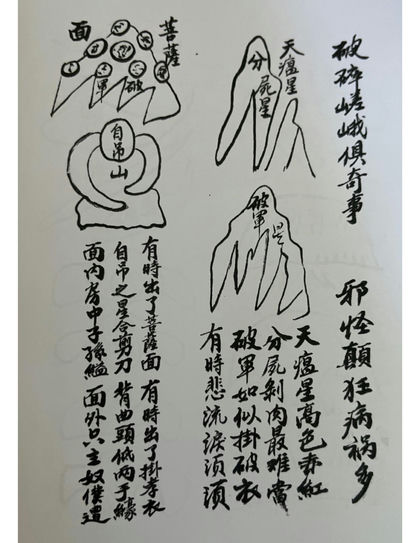 破碎嵯峨俱奇事 邪怪顛狂病祸多
天瘟星
分屍星
破軍星
天瘟星高色赤紅
分屍剝肉最難當
破軍如似掛破衣
有時悲流淚須須
菩薩
面
破軍
自吊山
有時出了菩薩面 有時出了掛孝衣
自吊之星合剪刀 背曲頭低两手緣
面内房中子孫縊 面外只主奴僕遭